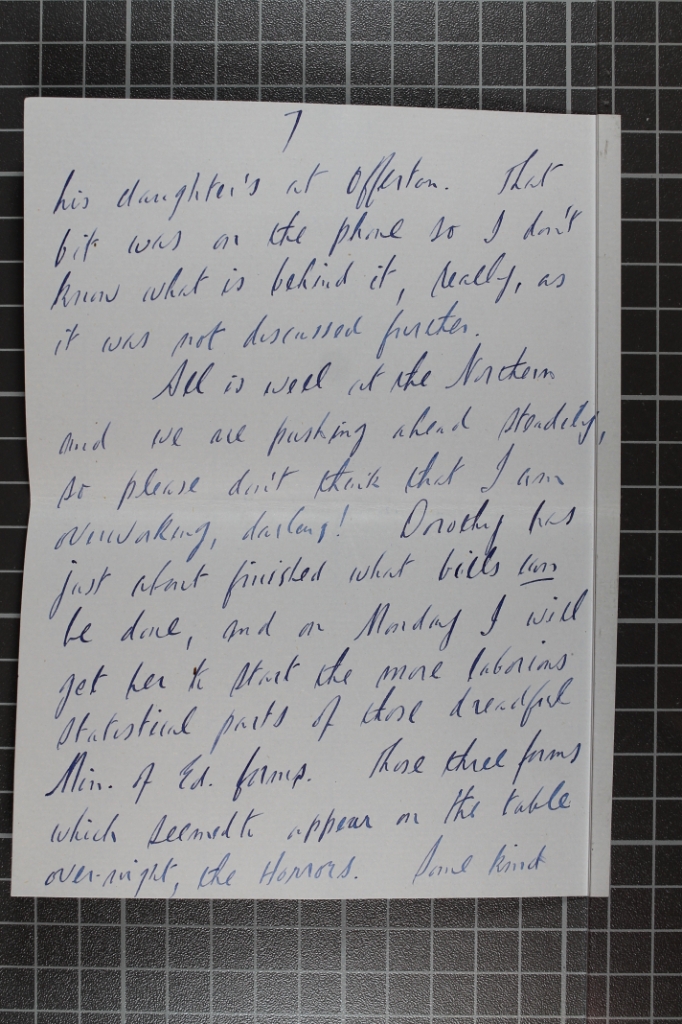 7
his daughter's at Offerton. That
bit was on the phone so I don't
know what is behind it, really, as
it was not discussed further.
All is well at the Northern
and we are pushing ahead steadily,
so please don't think that I am
overworking, darling! Dorothy has
just about finished what bills can
be done, and on Monday I will
get her to start the more laborious
statistical parts of those dreadful
Min. of Ed. forms. Those three forms
which seemed to appear on the table
over-night, the Horrors. Some kind